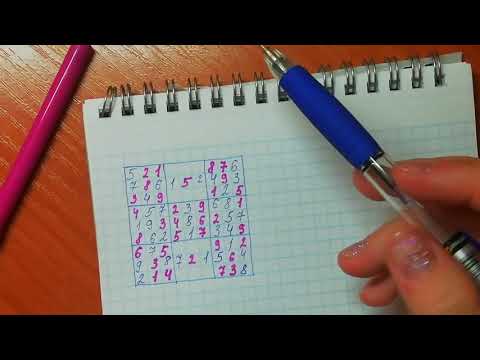 5 2 1 8 7 6
7 8 6 1 5 2 4 9 3
3 4 9 1 2 5
4 5 7 2 3 9 6 8 1
1 9 3 4 8 6 2 5 7
8 6 2 5 1 7 3 4 9
6 7 5 9 1 2
9 3 8 7 2 1 5 6 4
2 1 4 7 3 8